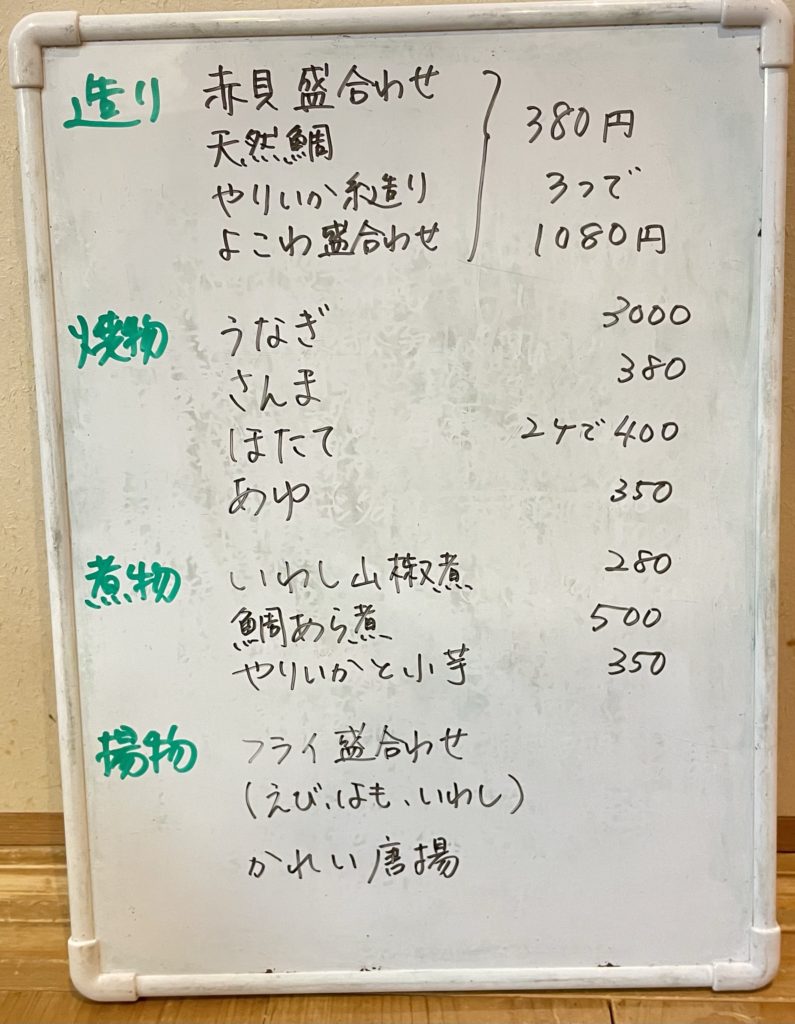 造り 赤貝盛合わせ
天然鯛 380円
やりいか糸造り 3つで
よこわ盛合わせ 1080円
焼物 うなぎ 3000
さんま 380
ほたて 2ケで400
あゆ 350
煮物 いわし山椒煮 280
鯛あら煮 500
やりいかと小芋 350
揚物 フライ盛合わせ
(えび、はも、いわし)
かれい唐揚